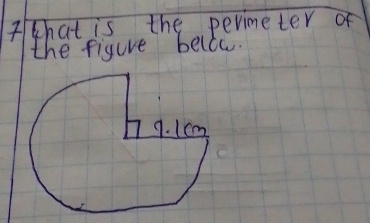 7 What is the perimeter of
the figure below.
9.1cm